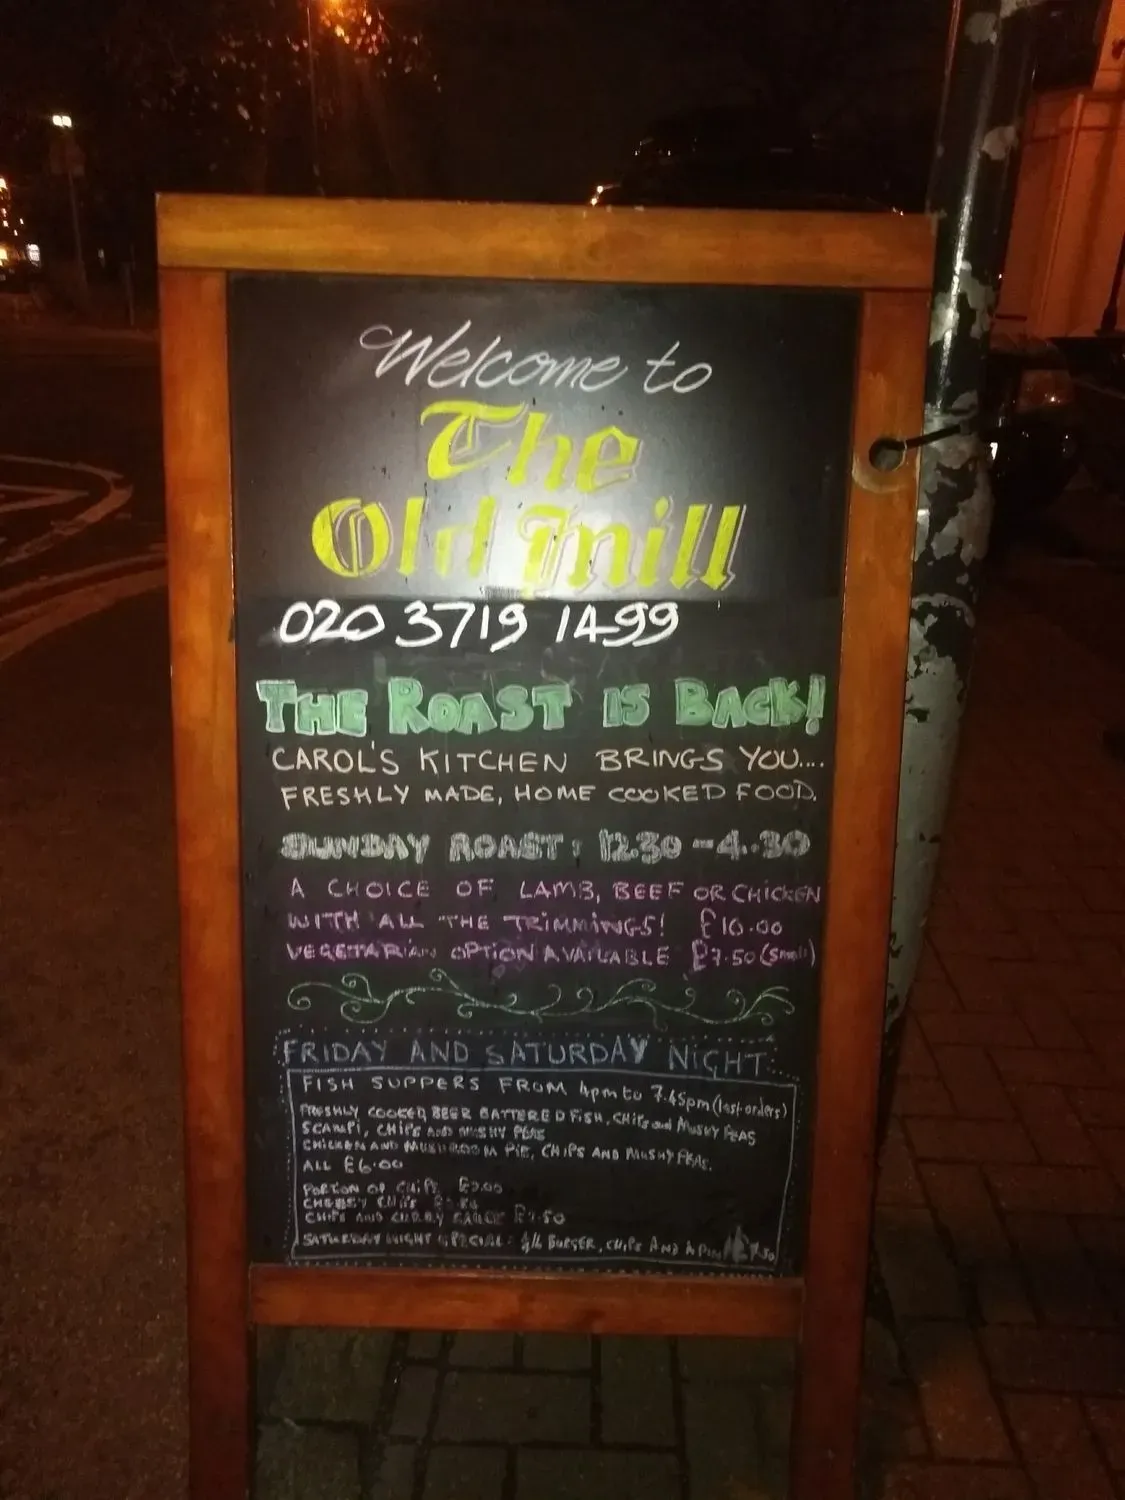 Welcome to
The
Old Mill
020 3719 1499
THE ROAST IS BACK!
CAROL'S KITCHEN BRINGS YOU....
FRESHLY MADE, HOME COOKED FOOD.
SUNDAY ROAST: 12.30 - 4.30
A CHOICE OF LAMB, BEEF OR CHICKEN
WITH ALL THE TRIMMINGS! £10.00
VEGETARIAN OPTION AVAILABLE £7.50 (small)
FRIDAY AND SATURDAY NIGHT
FISH SUPPERS FROM 4pm to 7.45pm (last orders)
FRESHLY COOKED BEER BATTERED FISH, CHIPS and MUSHY PEAS
SCAMPI, CHIPS AND MUSHY PEAS
CHICKEN AND MUSHROOM PIE, CHIPS AND MUSHY PEAS.
ALL £6.00
PORTION OF CHIPS
CHEESY CHIPS
CHIPS AND CURRY SAUCE
SATURDAY NIGHT SPECIAL: BURGER, CHIPS AND A PINT